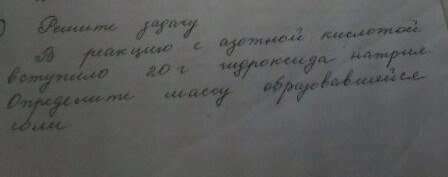 ) Решите задачу
В реакцию с азотной кислотой
вступило 20 г гидроксида натрия.
Определите массу образовавшейся
соли